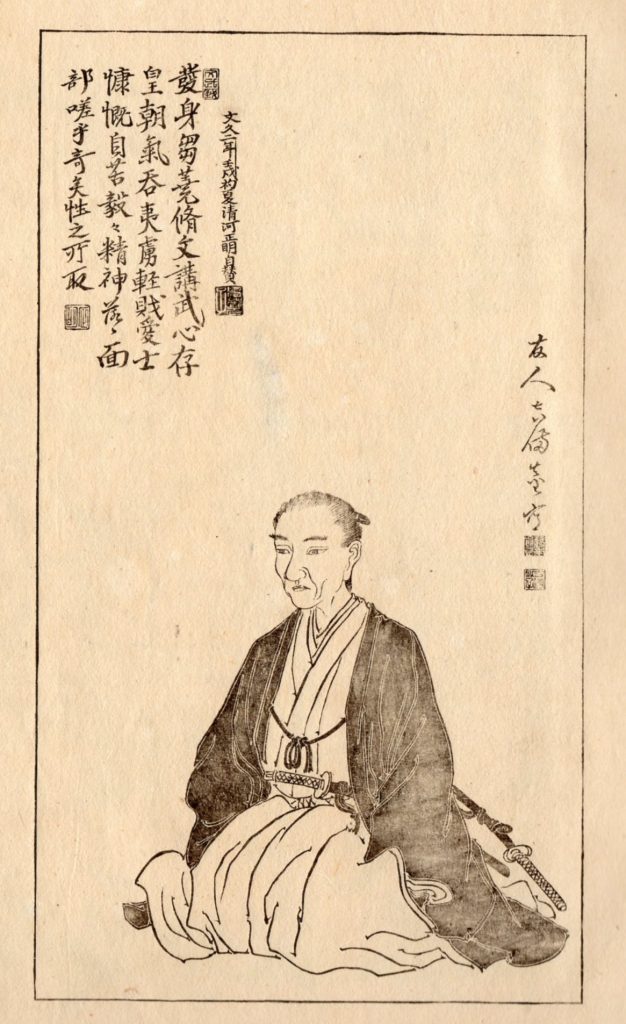 友人
文久二年壬戌初夏清河正明自賛
發身芻蕘脩文講武心存
皇朝氣吞夷虜軽戝愛士
慷慨自苦毅々精神落々面
部嗟乎奇矣性之所取